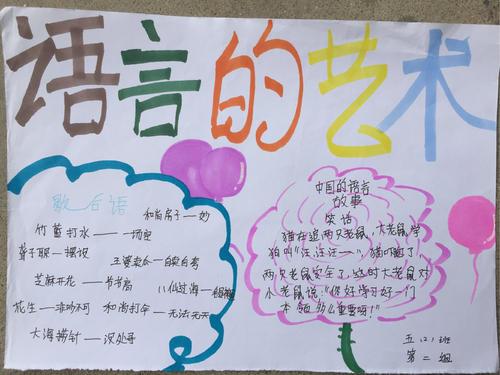 语言的艺术
歇后语
和尚房子——妙
竹篮打水——一场空
聋子耳——摆设
王婆卖瓜——自卖自夸
芝麻开花——节节高
八仙过海——
花生——非吵不可
和尚打伞——无法无天
大海捞针——深处寻
中国的语言
故事
笑话
猫在追两只老鼠,大老鼠学
狗叫"汪、汪汪——"猫吓跑了,
两只老鼠安全了,这时大老鼠对
小老鼠说:"你好学习好一门
本领多么重要呀!"
五(2)班
第二组